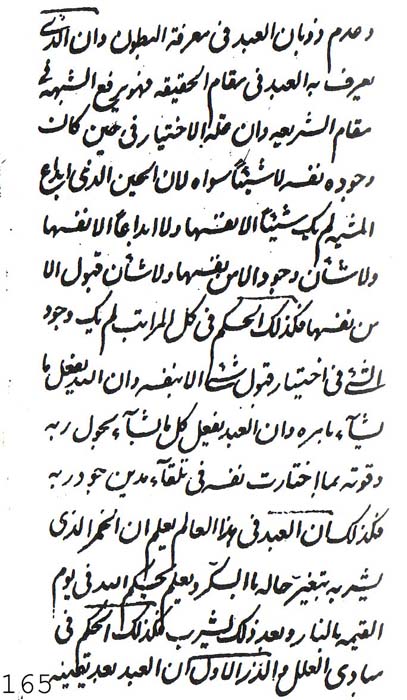 و عدم ذوبان العبد فی معرفة البطون وان الذی
یعرف به العبد فی مقام الحقیقه فهو یرفع الشبهه فی
مقام الشریعه وان علة الاختیار فی حین کانت
وجوده نفسه لا شیئاً سواه لان الحین الذی ابداع
المشیه لم یک شیئاً الا نفسها ولا ابداعاً الا نفسها
ولا شأن وجود الا من نفسها ولا شأن قبول الا
من نفسها فکذلک الحکم فی کل المراتب لم یک وجود
الشیء فی اختیار قبول شیء الا بنفسه وان الله یفعل ما
یشآء بامره وان العبد یفعل کل ما یشآء بحول ربه
وقوته بما اختارت نفسه فی تلقآء مدین جود ربه
فکذلک ان العبد فی هذا العالم یعلم ان الخمر الذی
یشربه یتغیر حاله بالسکر ویعلم بحکم الله فی یوم
القیمه بالنار وبعد ذلک یشرب فکذلک الحکم فی
مبادی العلل والذر الاول ان العبد بعد یقینه
165